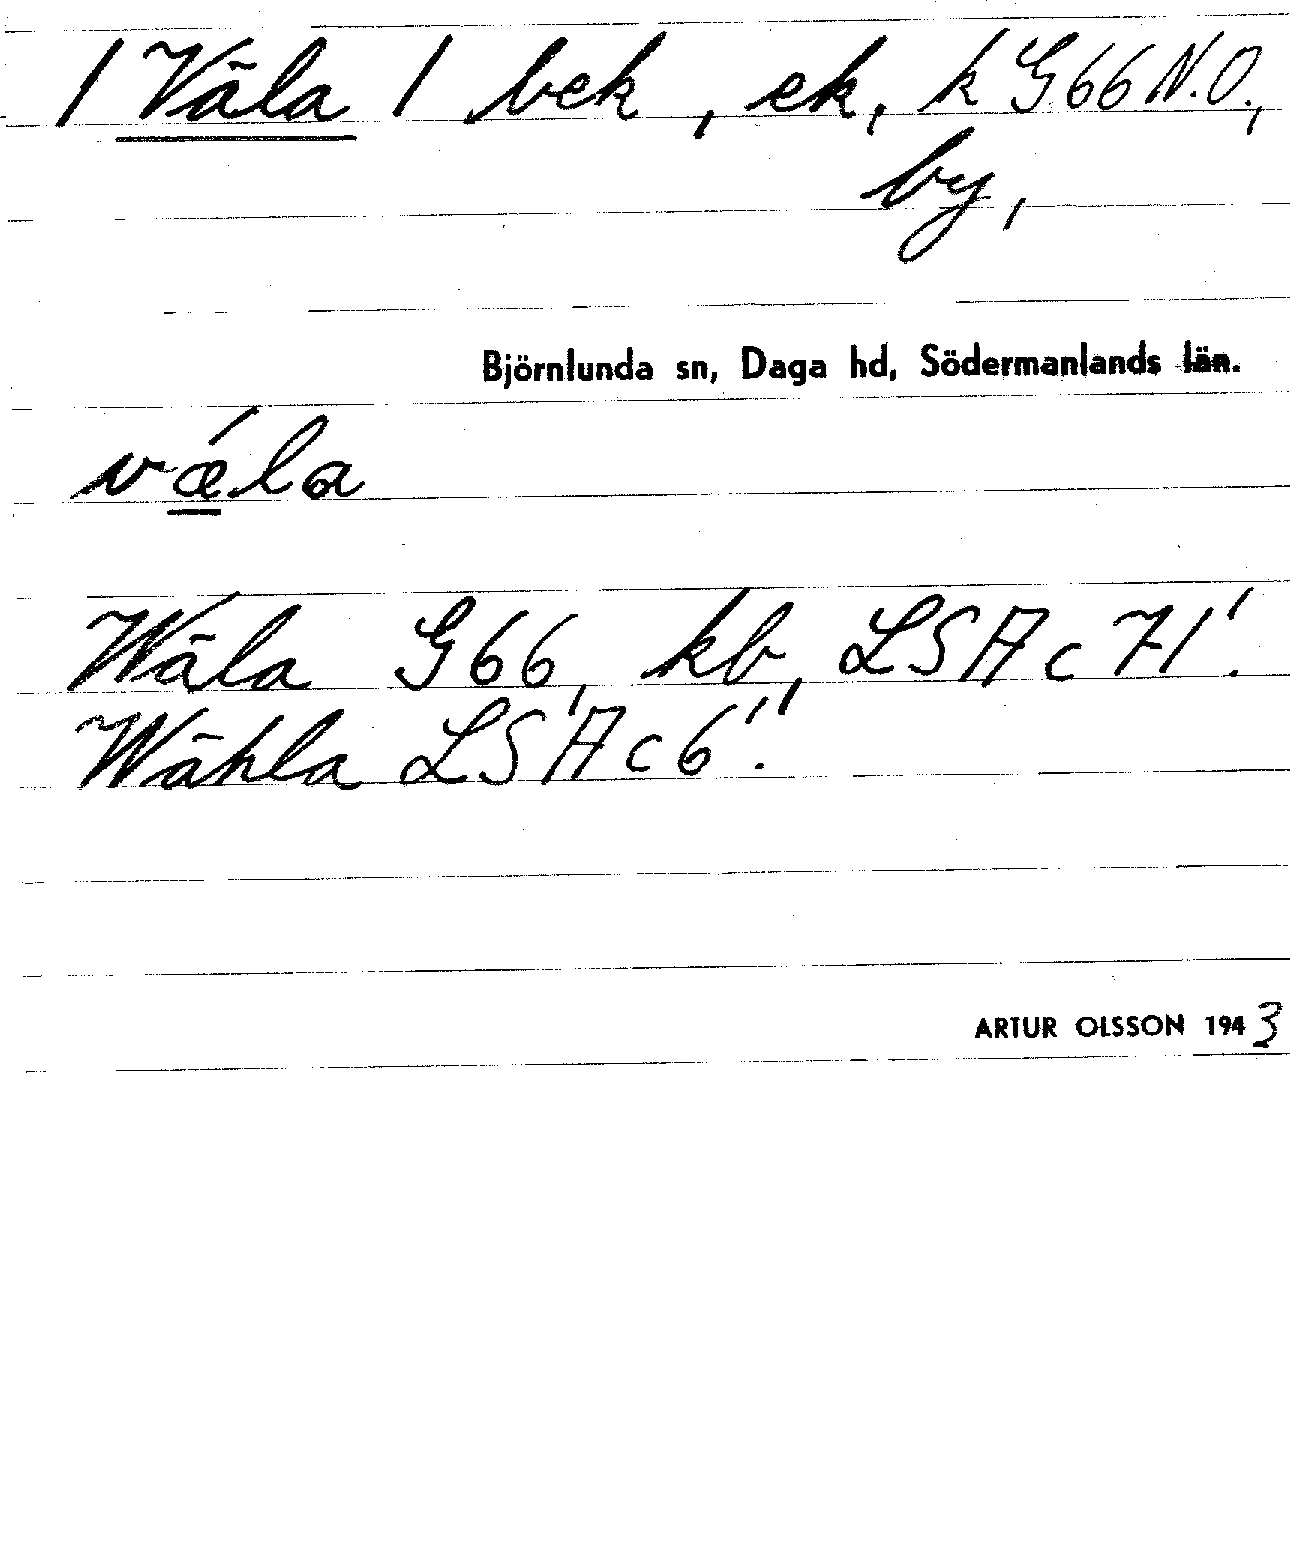 / Väla / bek, ek, k G66 N.O.,
by,
Björnlunda sn, Daga hd, Södermanlands län.
vǽla
Wäla G66, kb, LSA c 71'.
Wähla LSA c 6".
ARTUR OLSSON 1943